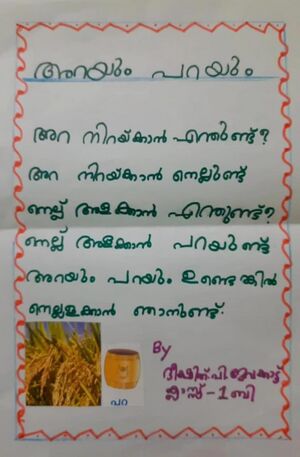 അറയും പറയും
അറ നിറയ്ക്കാൻ എന്തുണ്ട്?
അറ നിറയ്ക്കാൻ നെല്ലുണ്ട്
നെല്ല് അളക്കാൻ എന്തുണ്ട്?
നെല്ല് അളക്കാൻ പറയുണ്ട്
അറയും പറയും ഉണ്ടെങ്കിൽ
നെല്ലളക്കാൻ ഞാനുണ്ട്.
പറ
By
ക്ലാസ്സ് - 1 ബി